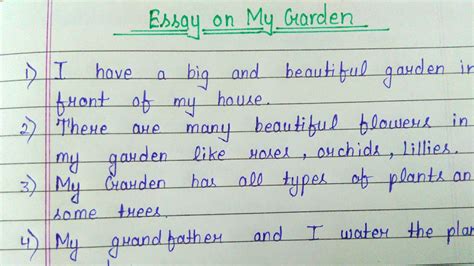 Essay on My Garden
1) I have a big and beautiful garden in
front of my house.
2) There are many beautiful flowers in
my garden like roses, orchids, lillies.
3) My Garden has all types of plants an
some trees.
4) My grandfather and I water the plan